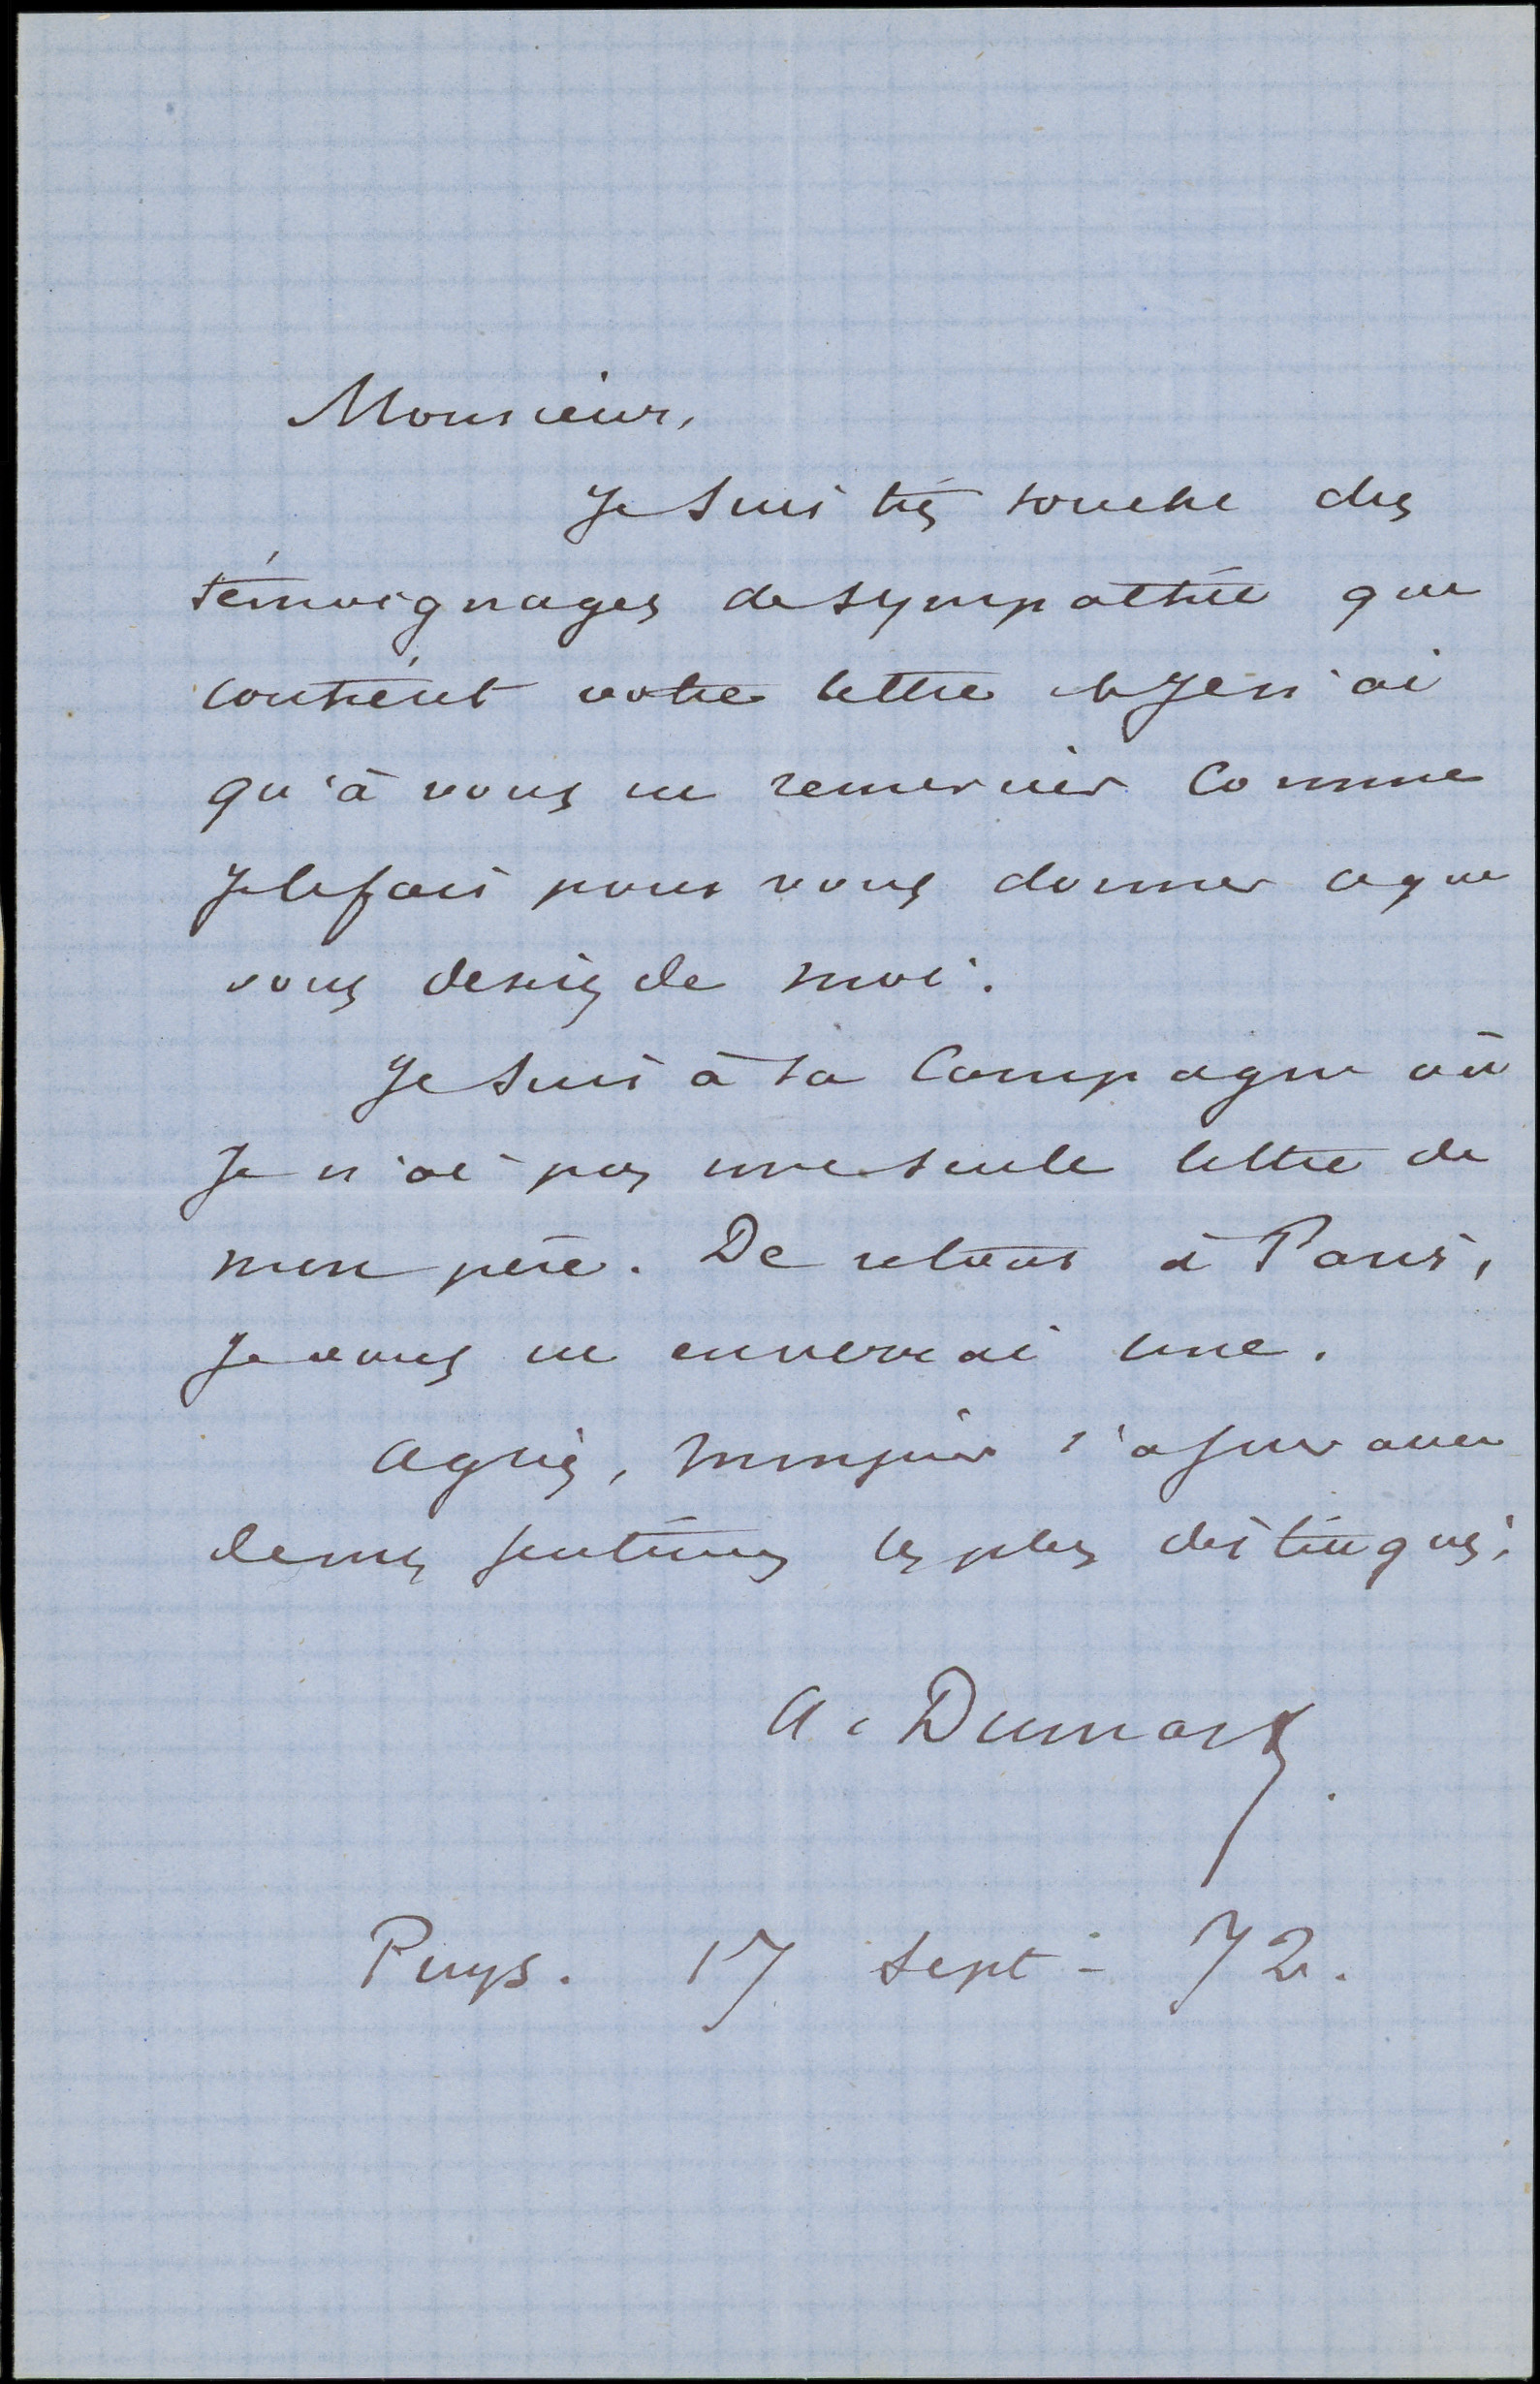 Monsieur,
Je suis très touché des
témoignages de sympathie que
contient votre lettre et je n'ai
qu'à vous en remercier comme
je le fais pour vous donner ce que
vous désirez de moi.
Je suis à la Campagne où
je n'ai pas une seule lettre de
mon père. De retour à Paris,
je vous en enverrai une.
Agréez, Monsieur l'assurance
de mes sentimens les plus distingués.
A. Dumas
Puys. 17 sept - 72.